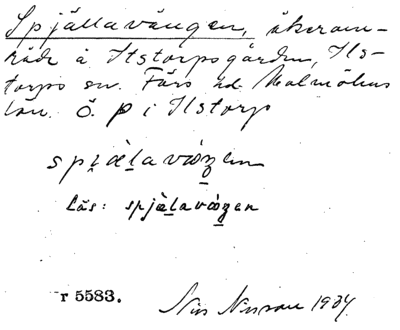 Spjällavången, åkerom-
råde å Ilstorpsgården, Ils-
torps sn. Färs hd. Malmöhus
län. Ö. p i Ilstorp
spjàlavåŋen
Läs: spjàlavåŋen
r 5583.
Nils Nilsson 1934.